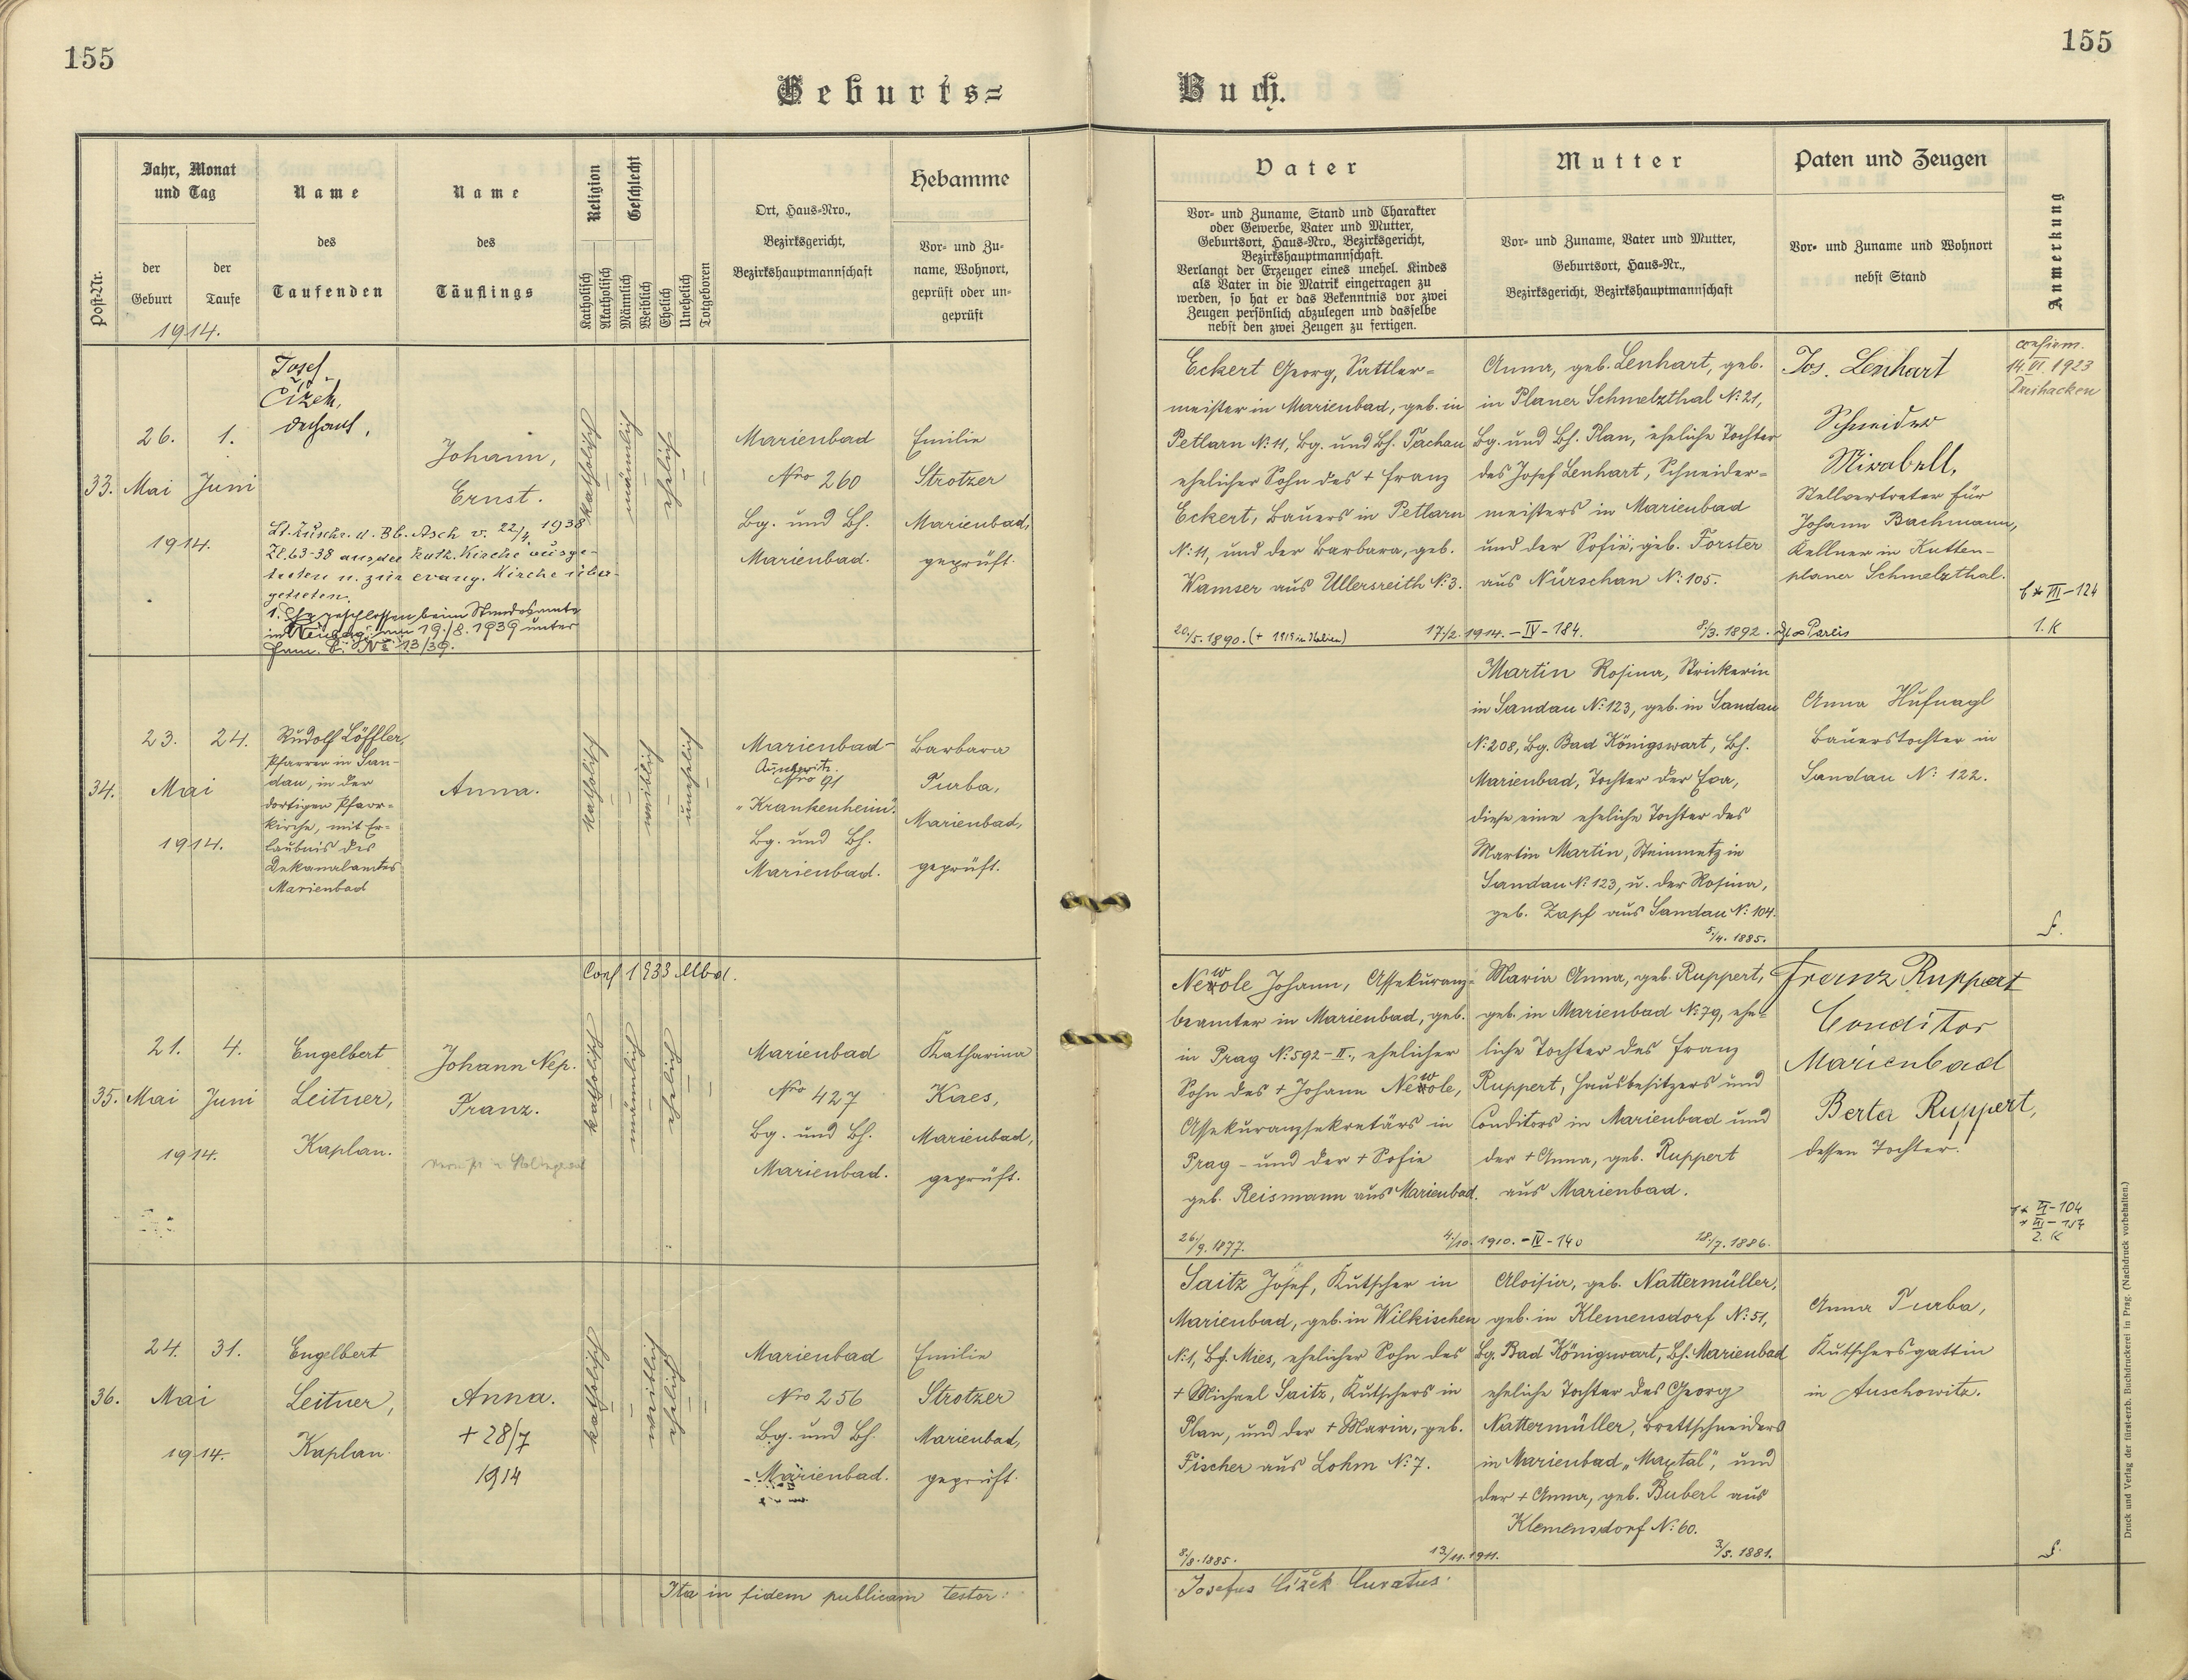 155
155
Geburts=
Buch.
Post-Nr.
Jahr, Monat
und Tag
der
Geburt
der
Taufe
1914.
Name
des
Taufenden
Name
des
Täuflings
Religion
Katholisch
Akatholisch
Geschlecht
Männlich
Weiblich
Ehelich
Unehelich
Totgeboren
Ort, Haus-Nro.,
Bezirksgericht,
Bezirkshauptmannschaft
Hebamme
Vor- und Zu-
name, Wohnort,
geprüft oder un-
geprüft
Vater
Vor- und Zuname, Stand und Charakter
oder Gewerbe, Vater und Mutter,
Geburtsort, Haus-Nro., Bezirksgericht,
Bezirkshauptmannschaft.
Verlangt der Erzeuger eines unehel. Kindes
als Vater in die Matrik eingetragen zu
werden, so hat er das Bekenntnis vor zwei
Zeugen persönlich abzulegen und dasselbe
nebst den zwei Zeugen zu fertigen.
Mutter
Vor- und Zuname, Vater und Mutter,
Geburtsort, Haus-Nr.,
Bezirksgericht, Bezirkshauptmannschaft
Paten und Zeugen
Vor- und Zuname und Wohnort
nebst Stand
Anmerkung
33.
26.
Mai
1.
Juni
1914.
Josef
Čížek,
Dechant,
Johann,
Ernst.
Lt. Zuschr. d. Bb. Asch v. 22/4. 1938
Zl. 63-38 aus der kath. Kirche ausge-
treten u. zur evang. Kirche über-
getreten.
1. Ehe geschlossen beim Standesamte
in am 19./8. 1939 unter
Fam. B. No 13/39.
katholisch
männlich
ehelich
Marienbad
Nro 260
Bg. und Bh.
Marienbad.
Emilie
Strotzer
Marienbad,
geprüft.
Eckert Georg, Sattler=
meister in Marienbad, geb. in
Petlarn N: 11, Bg. und Bh. Tachau
ehelicher Sohn des + Franz
Eckert, Bauers in Petlarn
N: 11, und der Barbara, geb.
Wamser aus Ullersreith N: 3.
20./5. 1890. (+ 1919 in Italien)
17/2. 1914. – IV – 184.
Anna, geb. Lenhart, geb.
in Planer Schmelzthal N: 21,
Bg. und Bh. Plan, eheliche Tochter
des Josef Lenhart, Schneider=
meisters in Marienbad
und der Sofie, geb. Forster
aus Nürschan N: 105.
8/3. 1892.
Jos. Lenhart
Schneider
Mirabell,
Stellvertreter für
Johann Bachmann,
Kellner in Kutten-
planer Schmelzthal.
confirm.
14. VI. 1923
Dreihacken
VII – 124
1. K
34.
23.
24.
Mai
1914.
Rudolf Löffler,
Pfarrer in San-
dau, in der
dortigen Pfarr-
kirche, mit Er-
laubnis des
Dekanalamtes
Marienbad
Anna.
katholisch
weiblich
unehelich
Marienbad-
Auschowitz.
Nro 91
"Krankenheim".
Bg. und Bh.
Marienbad.
Barbara
Turba,
Marienbad,
geprüft.
Martin Rosina, Strickerin
in Sandau N: 123, geb. in Sandau
N: 208, Bg. Bad Königswart, Bh.
Marienbad, Tochter der Eva,
diese eine eheliche Tochter des
Martin Martin, Steinmetz in
Sandau N: 123, u. der Rosina,
geb. Zapf aus Sandau N: 104.
5/4. 1885.
Anna Hufnagl
Bauerstochter in
Sandau N: 122.
35.
21.
Mai
4.
Juni
1914.
Engelbert
Leitner,
Kaplan.
Johann Nep.
Franz.
Conf 1933 Mbd.
katholisch
männlich
ehelich
Marienbad
Nro 427
Bg. und Bh.
Marienbad.
Katharina
Kaes,
Marienbad,
geprüft.
Newole Johann, Assekuranz-
beamter in Marienbad, geb.
in Prag N: 592 – II., ehelicher
Sohn des + Johann Newole,
Assekuranzsekretärs in
Prag – und der + Sofie
geb. Reismann aus Marienbad.
26./9. 1877.
4./10. 1910. – IV – 140
Maria Anna, geb. Ruppert,
geb. in Marienbad N: 79, ehe-
liche Tochter des Franz
Ruppert, Hausbesitzers und
Conditors in Marienbad und
der + Anna, geb. Ruppert
aus Marienbad.
18./7. 1886.
Franz Ruppert
Conditor
Marienbad
Berta Ruppert,
dessen Tochter.
VI – 104
2. K
36.
24.
31.
Mai
1914.
Engelbert
Leitner,
Kaplan.
Anna.
+ 28/7
1914
katholisch
weiblich
ehelich
Marienbad
Nro 256
Bg. und Bh.
Marienbad.
Emilie
Strotzer
Marienbad,
geprüft.
Saitz Josef, Kutscher in
Marienbad, geb. in Wilkischen
N: 1, Bh. Mies, ehelicher Sohn des
+ Michael Saitz, Kutschers in
Plan, und der + Maria, geb.
Fischer aus Lohm N: 7.
8/8. 1885.
13/11. 1911.
Aloisia, geb. Nattermüller,
geb. in Klemensdorf N: 51,
Bg. Bad Königswart, Bh. Marienbad
eheliche Tochter des Georg
Nattermüller, Brettschneiders
in Marienbad „Maxtal“, und
der + Anna, geb. Buberl aus
Klemensdorf N: 60.
3/5. 1881.
Anna Turba,
Kutschersgattin
in Auschowitz.
Ita in fidem publicam testor:
Josefus Čížek Curatus.
Druck und Verlag der fürst-erzb. Buchdruckerei in Prag. (Nachdruck vorbehalten.)